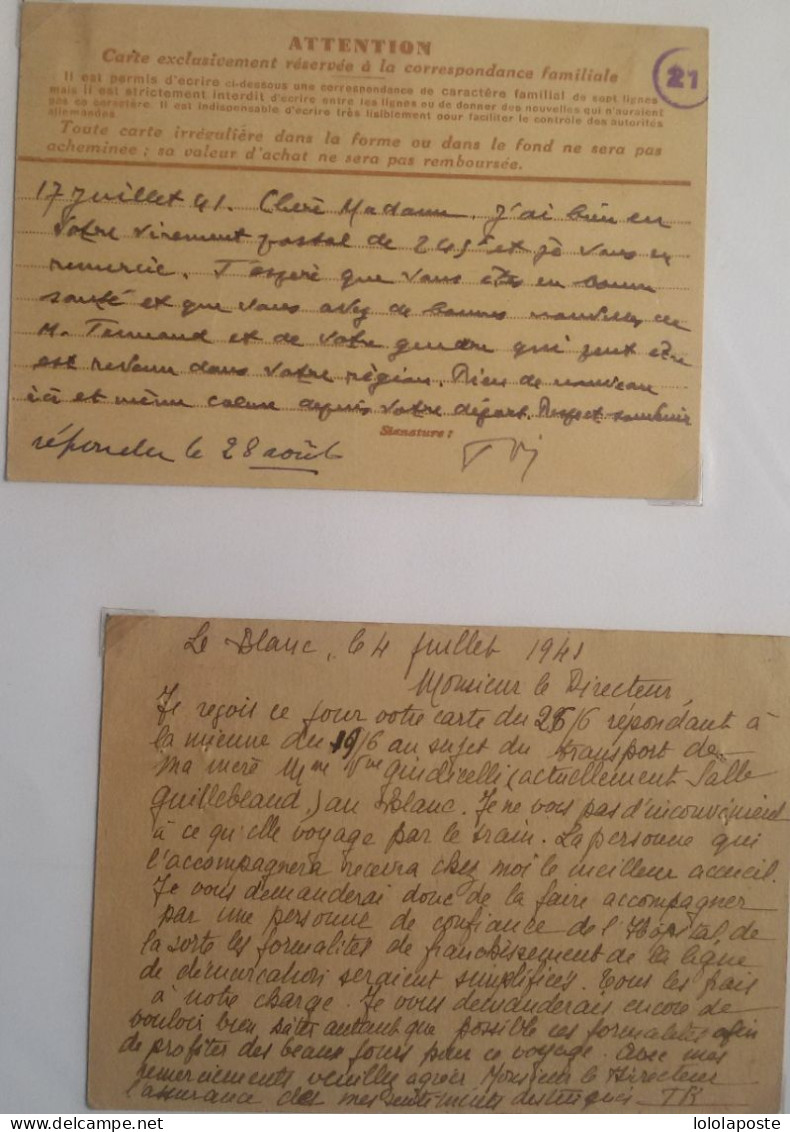 ATTENTION
Carte exclusivement réservée à la correspondance familiale
21
Il est permis d'écrire ci-dessous une correspondance de caractère familial de sept lignes
mais il est strictement interdit d'écrire entre les lignes ou de donner des nouvelles qui n'auraient
pas ce caractère. Il est indispensable d'écrire très lisiblement pour faciliter le contrôle des autorités
allemandes
Toute carte irrégulière dans la forme ou dans le fond ne sera pas
acheminée ; sa valeur d'achat ne sera pas remboursée.
17 Juillet 41. Chère Madame. J'ai bien eu
votre virement postal de 249 et je vous en
remercie. J'espère que vous êtes en bonne
santé et que vous avez de bonnes nouvelles de
M. et de votre gendre qui peut être
est revenu dans votre région. Rien de nouveau
ici et même calme depuis votre départ. Respect. souvenir
Signature :
répondu le 28 août
Le Blanc, le 4 Juillet 1941
Monsieur le Directeur,
Je reçois ce jour votre carte du 26/6 répondant à
la mienne du 19/6 au sujet du transport de
ma mère Mme Vve Giudicelli (actuellement Salle
Guillebland,) au Blanc. Je ne vois pas d'inconvénient
à ce qu'elle voyage par le train. La personne qui
l'accompagnera recevra chez moi le meilleur accueil.
Je vous demanderai donc de la faire accompagner
par une personne de confiance de l'Hôpital de
la sorte les formalités de franchissement de la ligne
de démarcation seraient simplifiés. Tous les frais
à notre charge. Je vous demanderais encore de
vouloir bien hâter autant que possible ces formalités afin
de profiter des beaux jours pour ce voyage. Avec mes
remerciements veuillez agréer Monsieur le Directeur
l'assurance de mes sentiments distingués
lololaposte